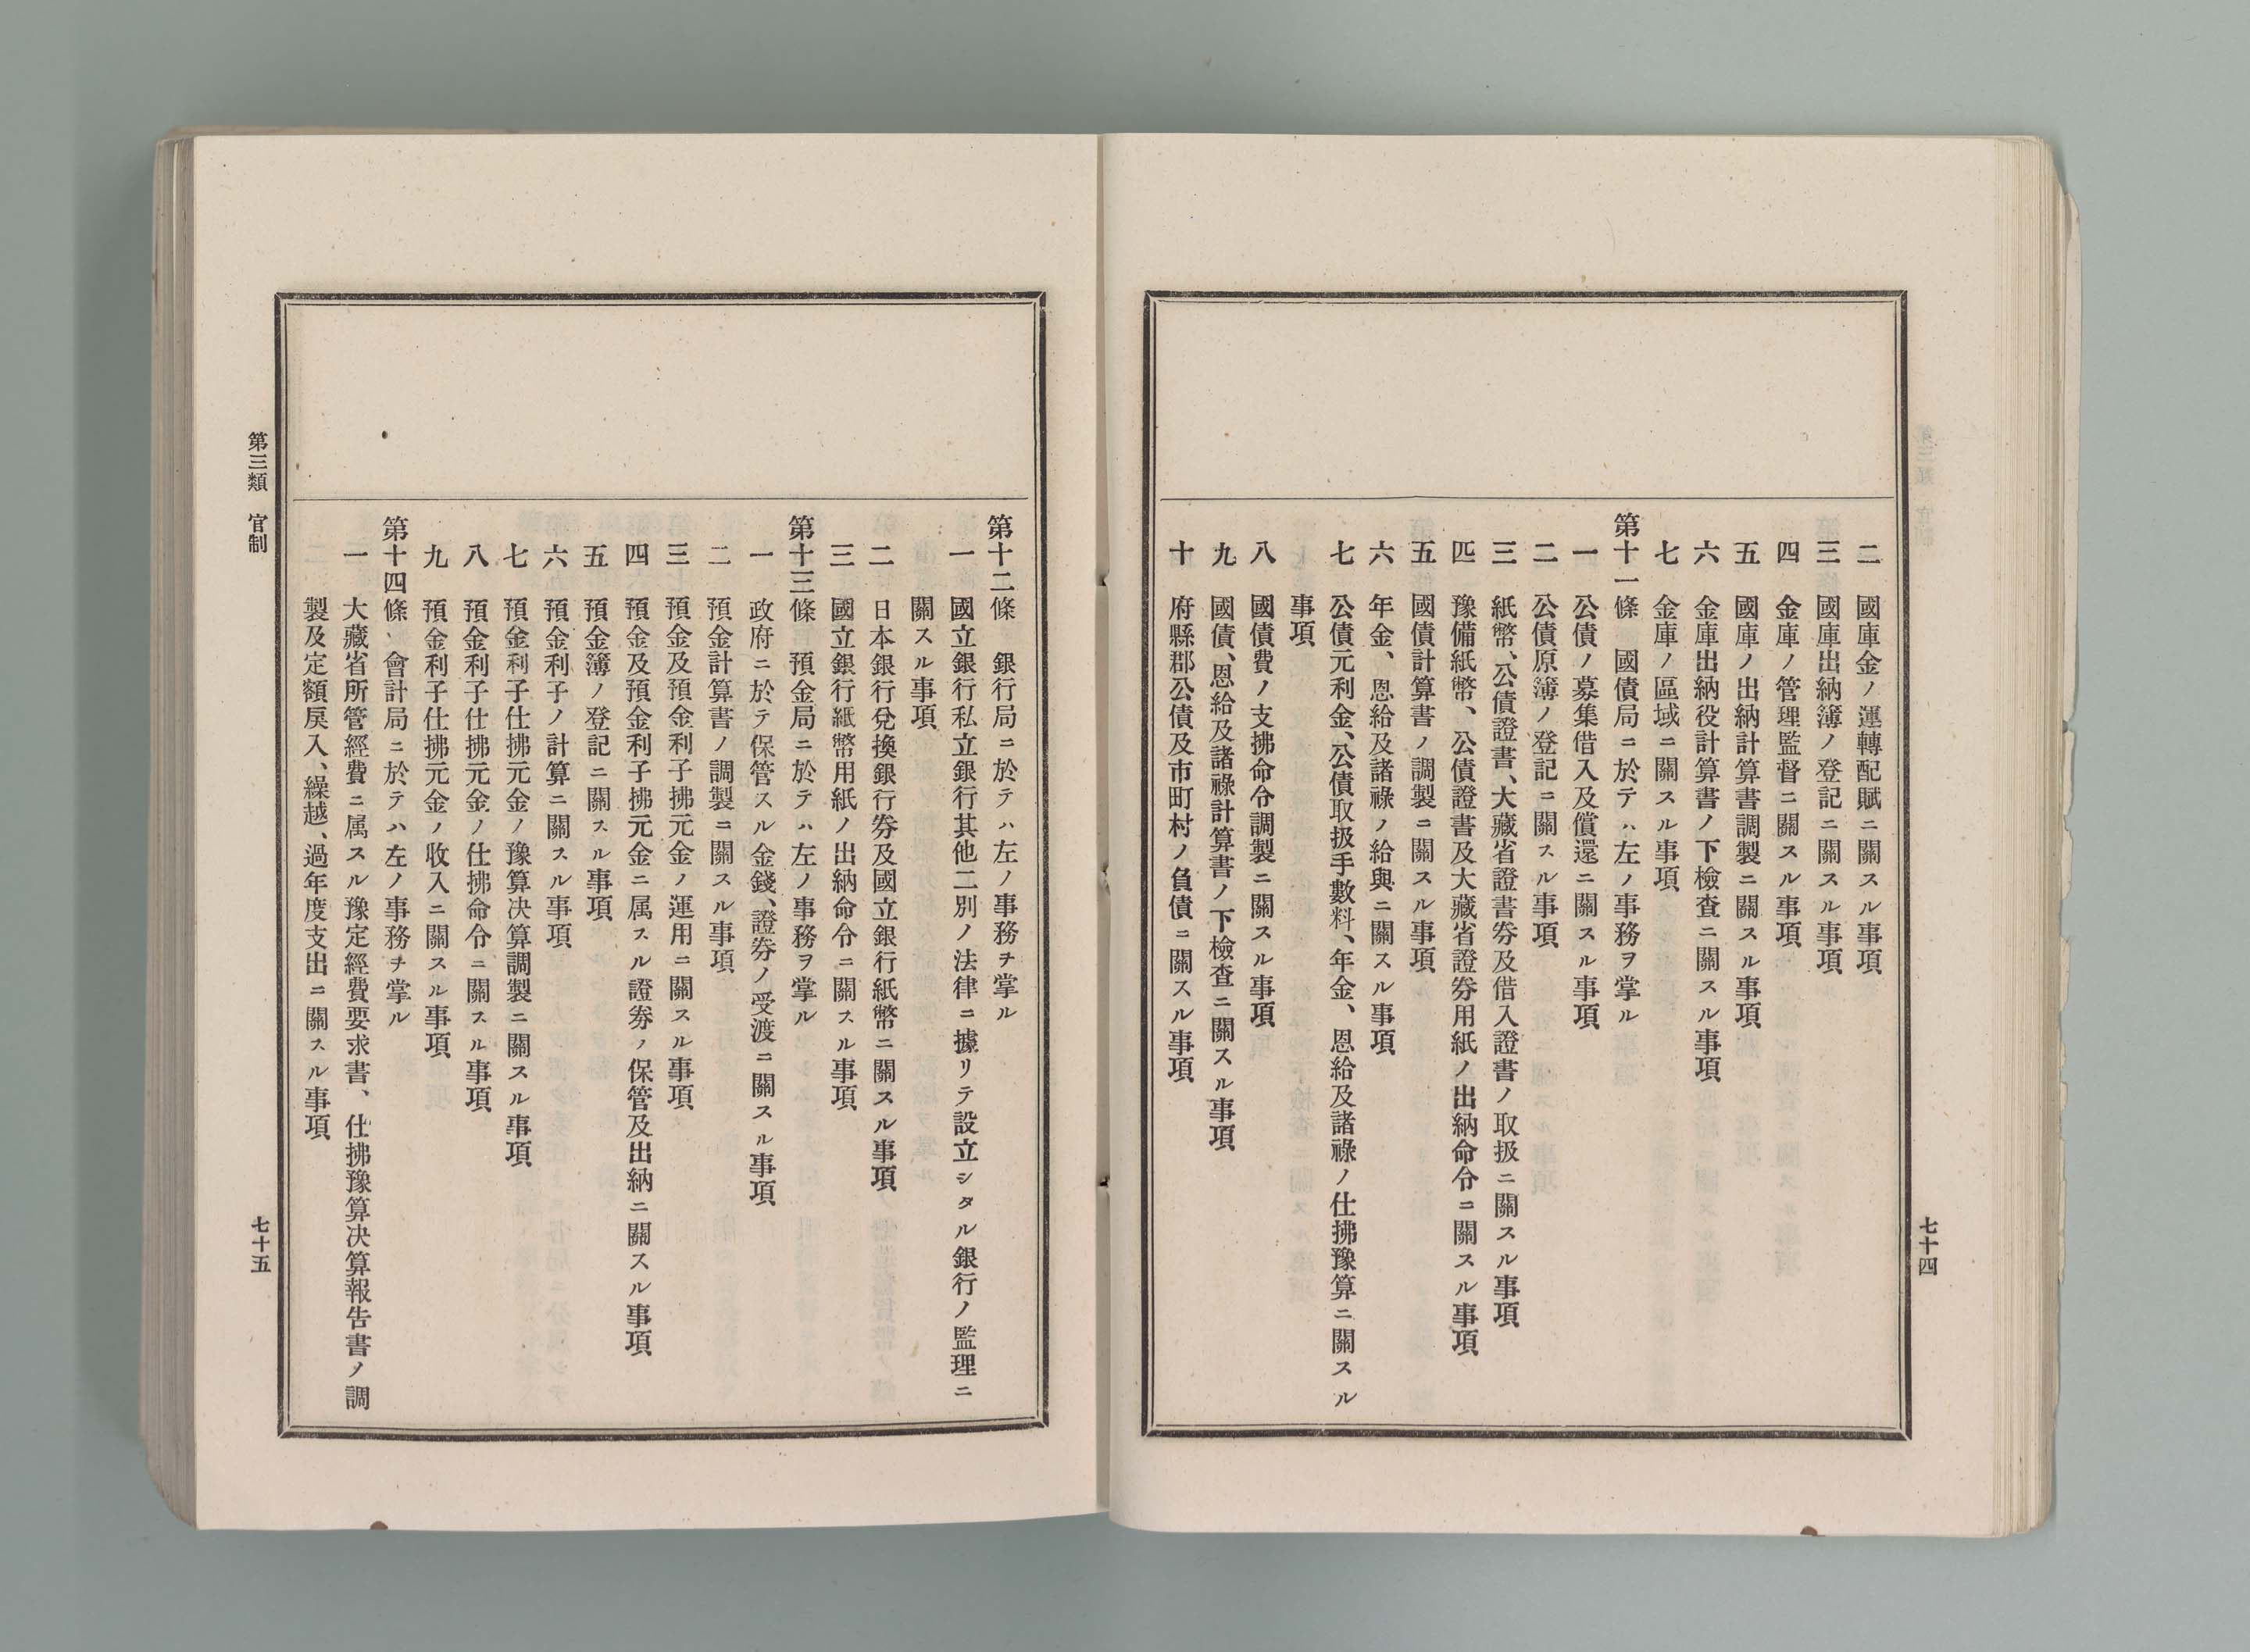 七十四
二　國庫金ノ運轉配賦ニ關スル事項
三　國庫出納簿ノ登記ニ關スル事項
四　金庫ノ管理監督ニ關スル事項
五　國庫ノ出納計算書調製ニ關スル事項
六　金庫出納役計算書ノ下檢査ニ關スル事項
七　金庫ノ區域ニ關スル事項
第十一條　國債局ニ於テハ左ノ事務ヲ掌ル
一　公債ノ募集借入及償還ニ關スル事項
二　公債原簿ノ登記ニ關スル事項
三　紙幣、公債證書、大藏省證書券及借入證書ノ取扱ニ關スル事項
四　豫備紙幣、公債證書及大藏省證券用紙ノ出納命令ニ關スル事項
五　國債計算書ノ調製ニ關スル事項
六　年金、恩給及諸祿ノ給與ニ關スル事項
七　公債元利金、公債取扱手數料、年金、恩給及諸祿ノ仕拂豫算ニ關スル
事項
八　國債費ノ支拂命令調製ニ關スル事項
九　國債、恩給及諸祿計算書ノ下檢査ニ關スル事項
十　府縣郡公債及市町村ノ負債ニ關スル事項
第十二條　銀行局ニ於テハ左ノ事務ヲ掌ル
一　國立銀行私立銀行其他二別ノ法律ニ據リテ設立シタル銀行ノ監理ニ
關スル事項
二　日本銀行兌換銀行券及國立銀行紙幣ニ關スル事項
三　國立銀行紙幣用紙ノ出納命令ニ關スル事項
第十三條　預金局ニ於テハ左ノ事務ヲ掌ル
一　政府ニ於テ保管スル金錢、證券ノ受渡ニ關スル事項
二　預金計算書ノ調製ニ關スル事項
三　預金及預金利子拂元金ノ運用ニ關スル事項
四　預金及預金利子拂元金ニ属スル證券ノ保管及出納ニ關スル事項
五　預金簿ノ登記ニ關スル事項
六　預金利子ノ計算ニ關スル事項
七　預金利子仕拂元金ノ豫算决算調製ニ關スル事項
八　預金利子仕拂元金ノ仕拂命令ニ關スル事項
九　預金利子仕拂元金ノ收入ニ關スル事項
第十四條、會計局ニ於テハ左ノ事務ヲ掌ル
一　大藏省所管經費ニ属スル豫定經費要求書、仕拂豫算决算報告書ノ調
製及定額戻入、繰越、過年度支出ニ關スル事項
第三類　官制
七十五